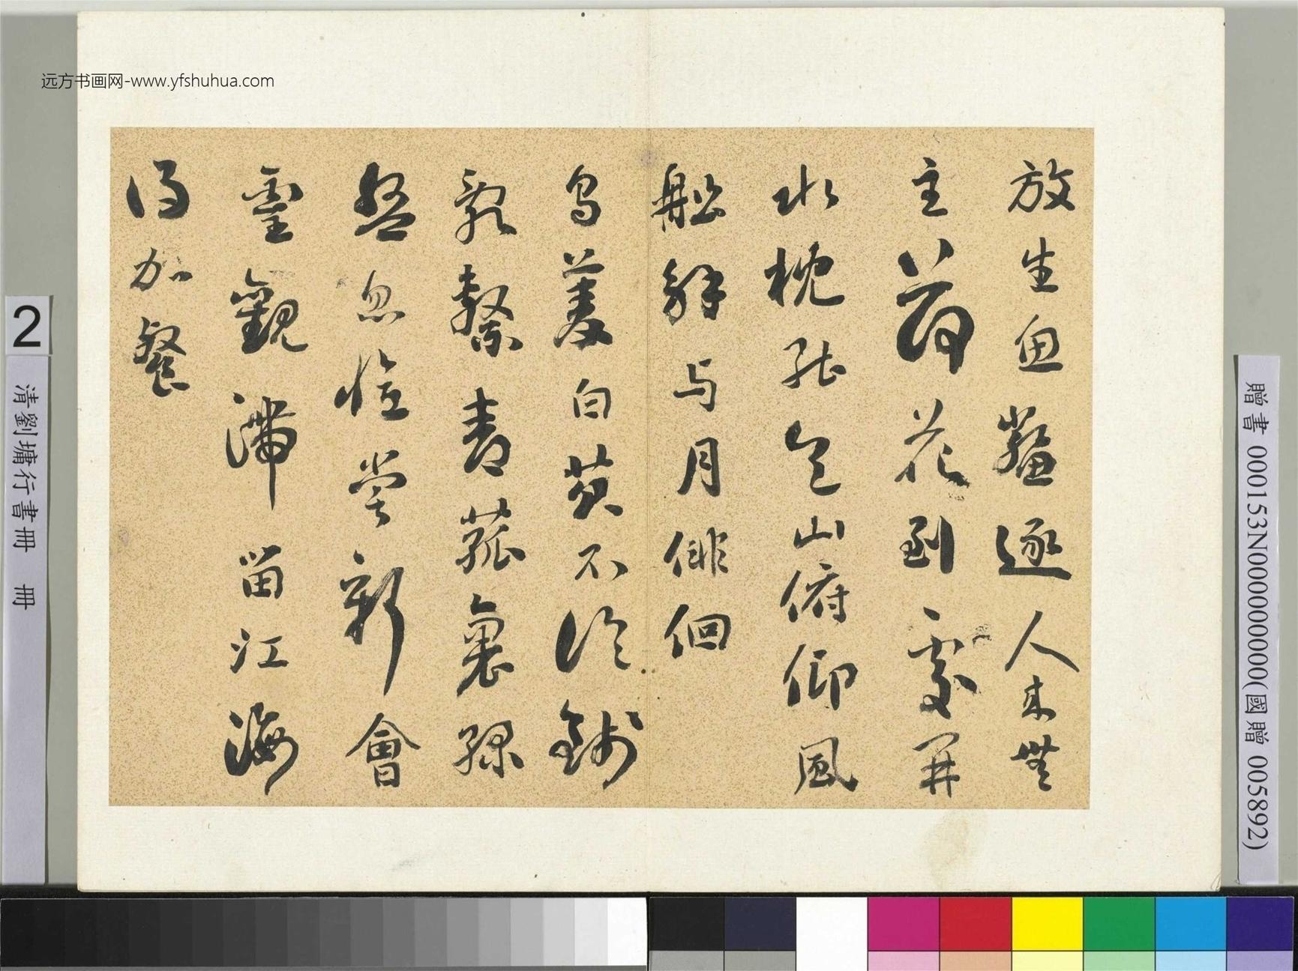 远方书画网-www.yfshuhua.com
放生魚鼈逐人来無
主荷花到處開
水枕能令山俯仰風
船解与月俳佪
烏菱白芡不論錢
亂繫青菰裹綠
盤忽憶嘗新會
靈觀滯留江海
得加餐
2
清劉墉行書冊 冊
贈書 000153N000000000(國贈 005892)